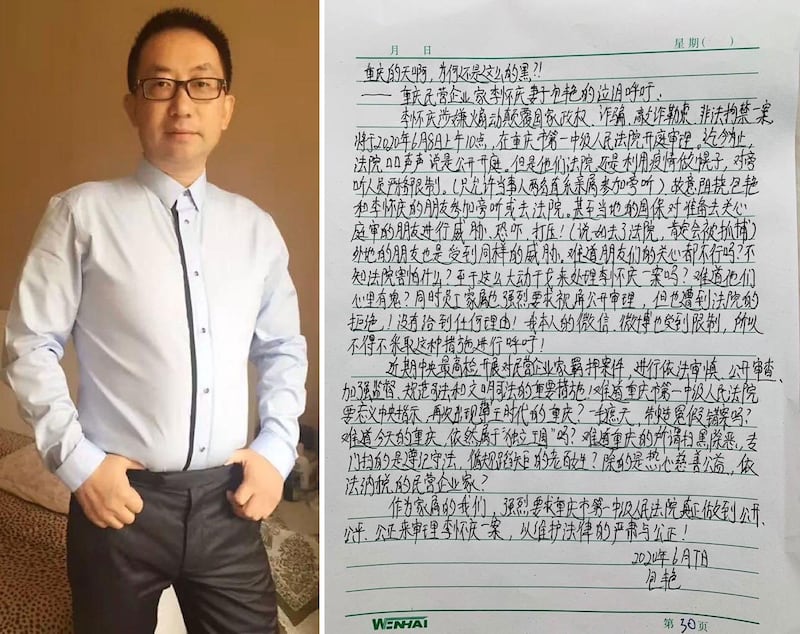 月 日 星期( )
重庆的天啊，为何还是这么的黑?!
—— 重庆民营企业家李怀庆妻子包艳的泣泪呼吁.
李怀庆涉嫌煽动颠覆国家政权、诈骗、敲诈勒索、非法拘禁一案
将于2020年6月8日上午10点，在重庆市第一中级人民法院开庭审理。迄今为止，
法院口口声声说是公开开庭。但是他们法院还是利用疫情做幌子，对旁
听人员严格限制。(只允许当事人两名直系亲属参加旁听) 故意阻挠包艳
和李怀庆的朋友参加旁听或去法院。甚至当地的国保对准备去关心
庭审的朋友进行威胁、恐吓、打压! (说如去了法院，肯定会被抓捕)
外地的朋友也是受到同样的威胁，难道朋友们的关心都不行吗? 不
知法院害怕什么? 至于这么大动干戈来处理李怀庆一案吗? 难道他们
心里有鬼? 同时员工家属也强烈要求视屏公开审理，但也遭到法院的
拒绝，! 没有给到任何理由! 我本人的微信、微博也受到限制，所以
不得不采取这种措施进行呼吁!
近期中央最高检开展对民营企业家羁押案件，进行依法审慎、公开审查、
加强监督、规范司法和文明司法的重要措施! 难道重庆市第一中级人民法院
要忤义中央指示，再次出现薄王时代的重庆? 一手遮天，制造冤假错案吗?
难道今天的重庆，依然属于"独立王国"吗? 难道重庆的所谓扫黑除恶，专
门扫的是遵纪守法、循规蹈矩的老百姓? 除的是热心慈善公益、依
法纳税的民营企业家?
作为家属的我们，强烈要求重庆市第一中级人民法院真正做到公开、
公平、公正来审理李怀庆一案，以维护法律的严肃与公正!
2020年6月7日
包艳
WENHAI 第 30 页